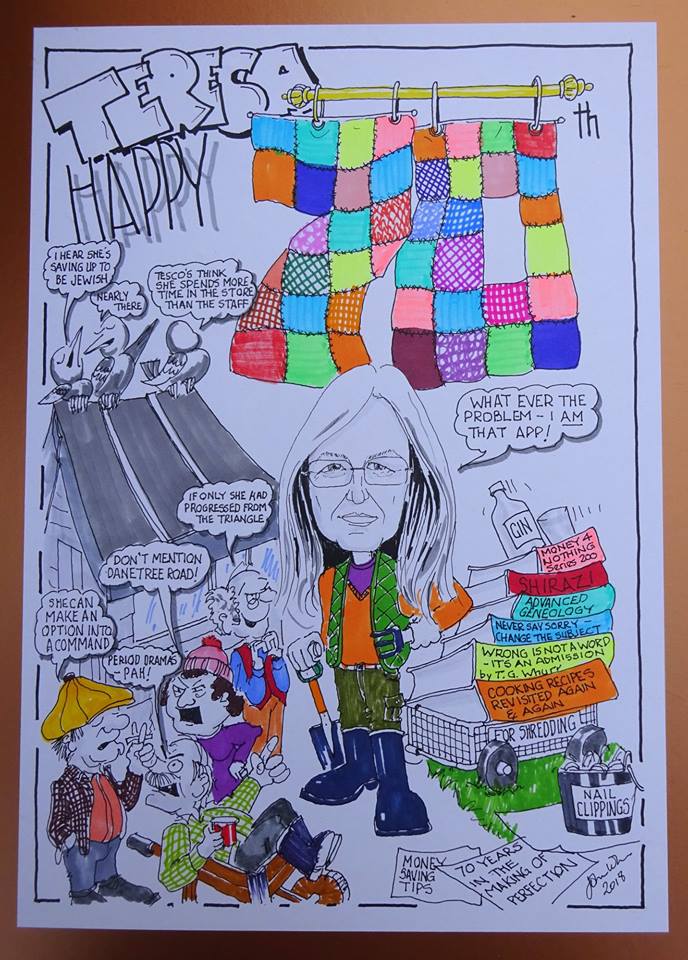 TERESA
HAPPY
70
th
I HEAR SHE'S
SAVING UP TO
BE JEWISH
NEARLY
THERE
TESCO'S THINK
SHE SPENDS MORE
TIME IN THE STORE
THAN THE STAFF
WHAT EVER THE
PROBLEM - I AM
THAT APP!
IF ONLY SHE HAD
PROGRESSED FROM
THE TRIANGLE
DON'T MENTION
DANETREE ROAD!
SHE CAN
MAKE AN
OPTION INTO
A COMMAND
PERIOD DRAMAS
- PAH!
GIN
MONEY 4
NOTHING
Series 200
SHIRAZ!
ADVANCED
GENEOLOGY
NEVER SAY SORRY -
CHANGE THE SUBJECT
WRONG IS NOT A WORD
- ITS AN ADMISSION
by T.G. Whury
COOKING RECIPES
REVISITED AGAIN
& AGAIN
FOR SHREDDING
NAIL
CLIPPINGS
MONEY
SAVING
TIPS
70 YEARS
IN THE
MAKING OF
PERFECTION
2018